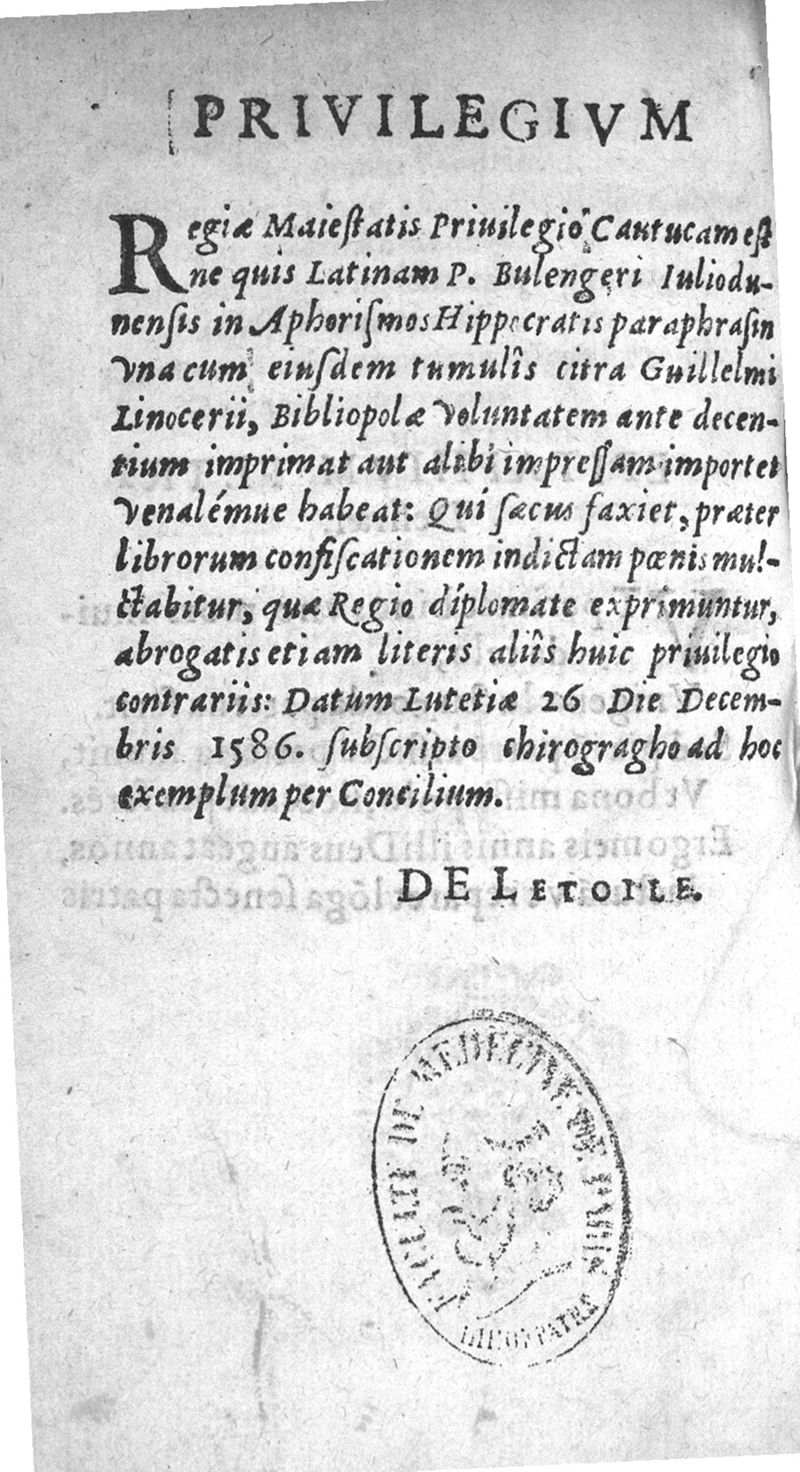 PRIVILEGIVM
Regiæ Maieſtatis Priuilegio Cautucam eſt
ne quis Latinam P. Bulengeri Iuliodu-
nenſis in Aphoriſmos Hippocratis paraphraſin
vna cum eiuſdem tumulîs citra Guillelmi
Linocerii, Bibliopolæ voluntatem ante decen-
tium imprimat aut alibi impreſſam importet
venalémue habeat: Qui ſæcus faxiet, præter
librorum confiſcationem indictam pœnis mul-
ctabitur, quæ Regio díplomate exprimuntur,
abrogatis etiam literis aliîs huic priuilegio
contrariis: Datum Lutetiæ 26 Die Decem-
bris 1586. ſubſcripto chirogragho ad hoc
exemplum per Concilium.
DE LETOILE.
FACULTÉ DE MEDECINE DE PARIS